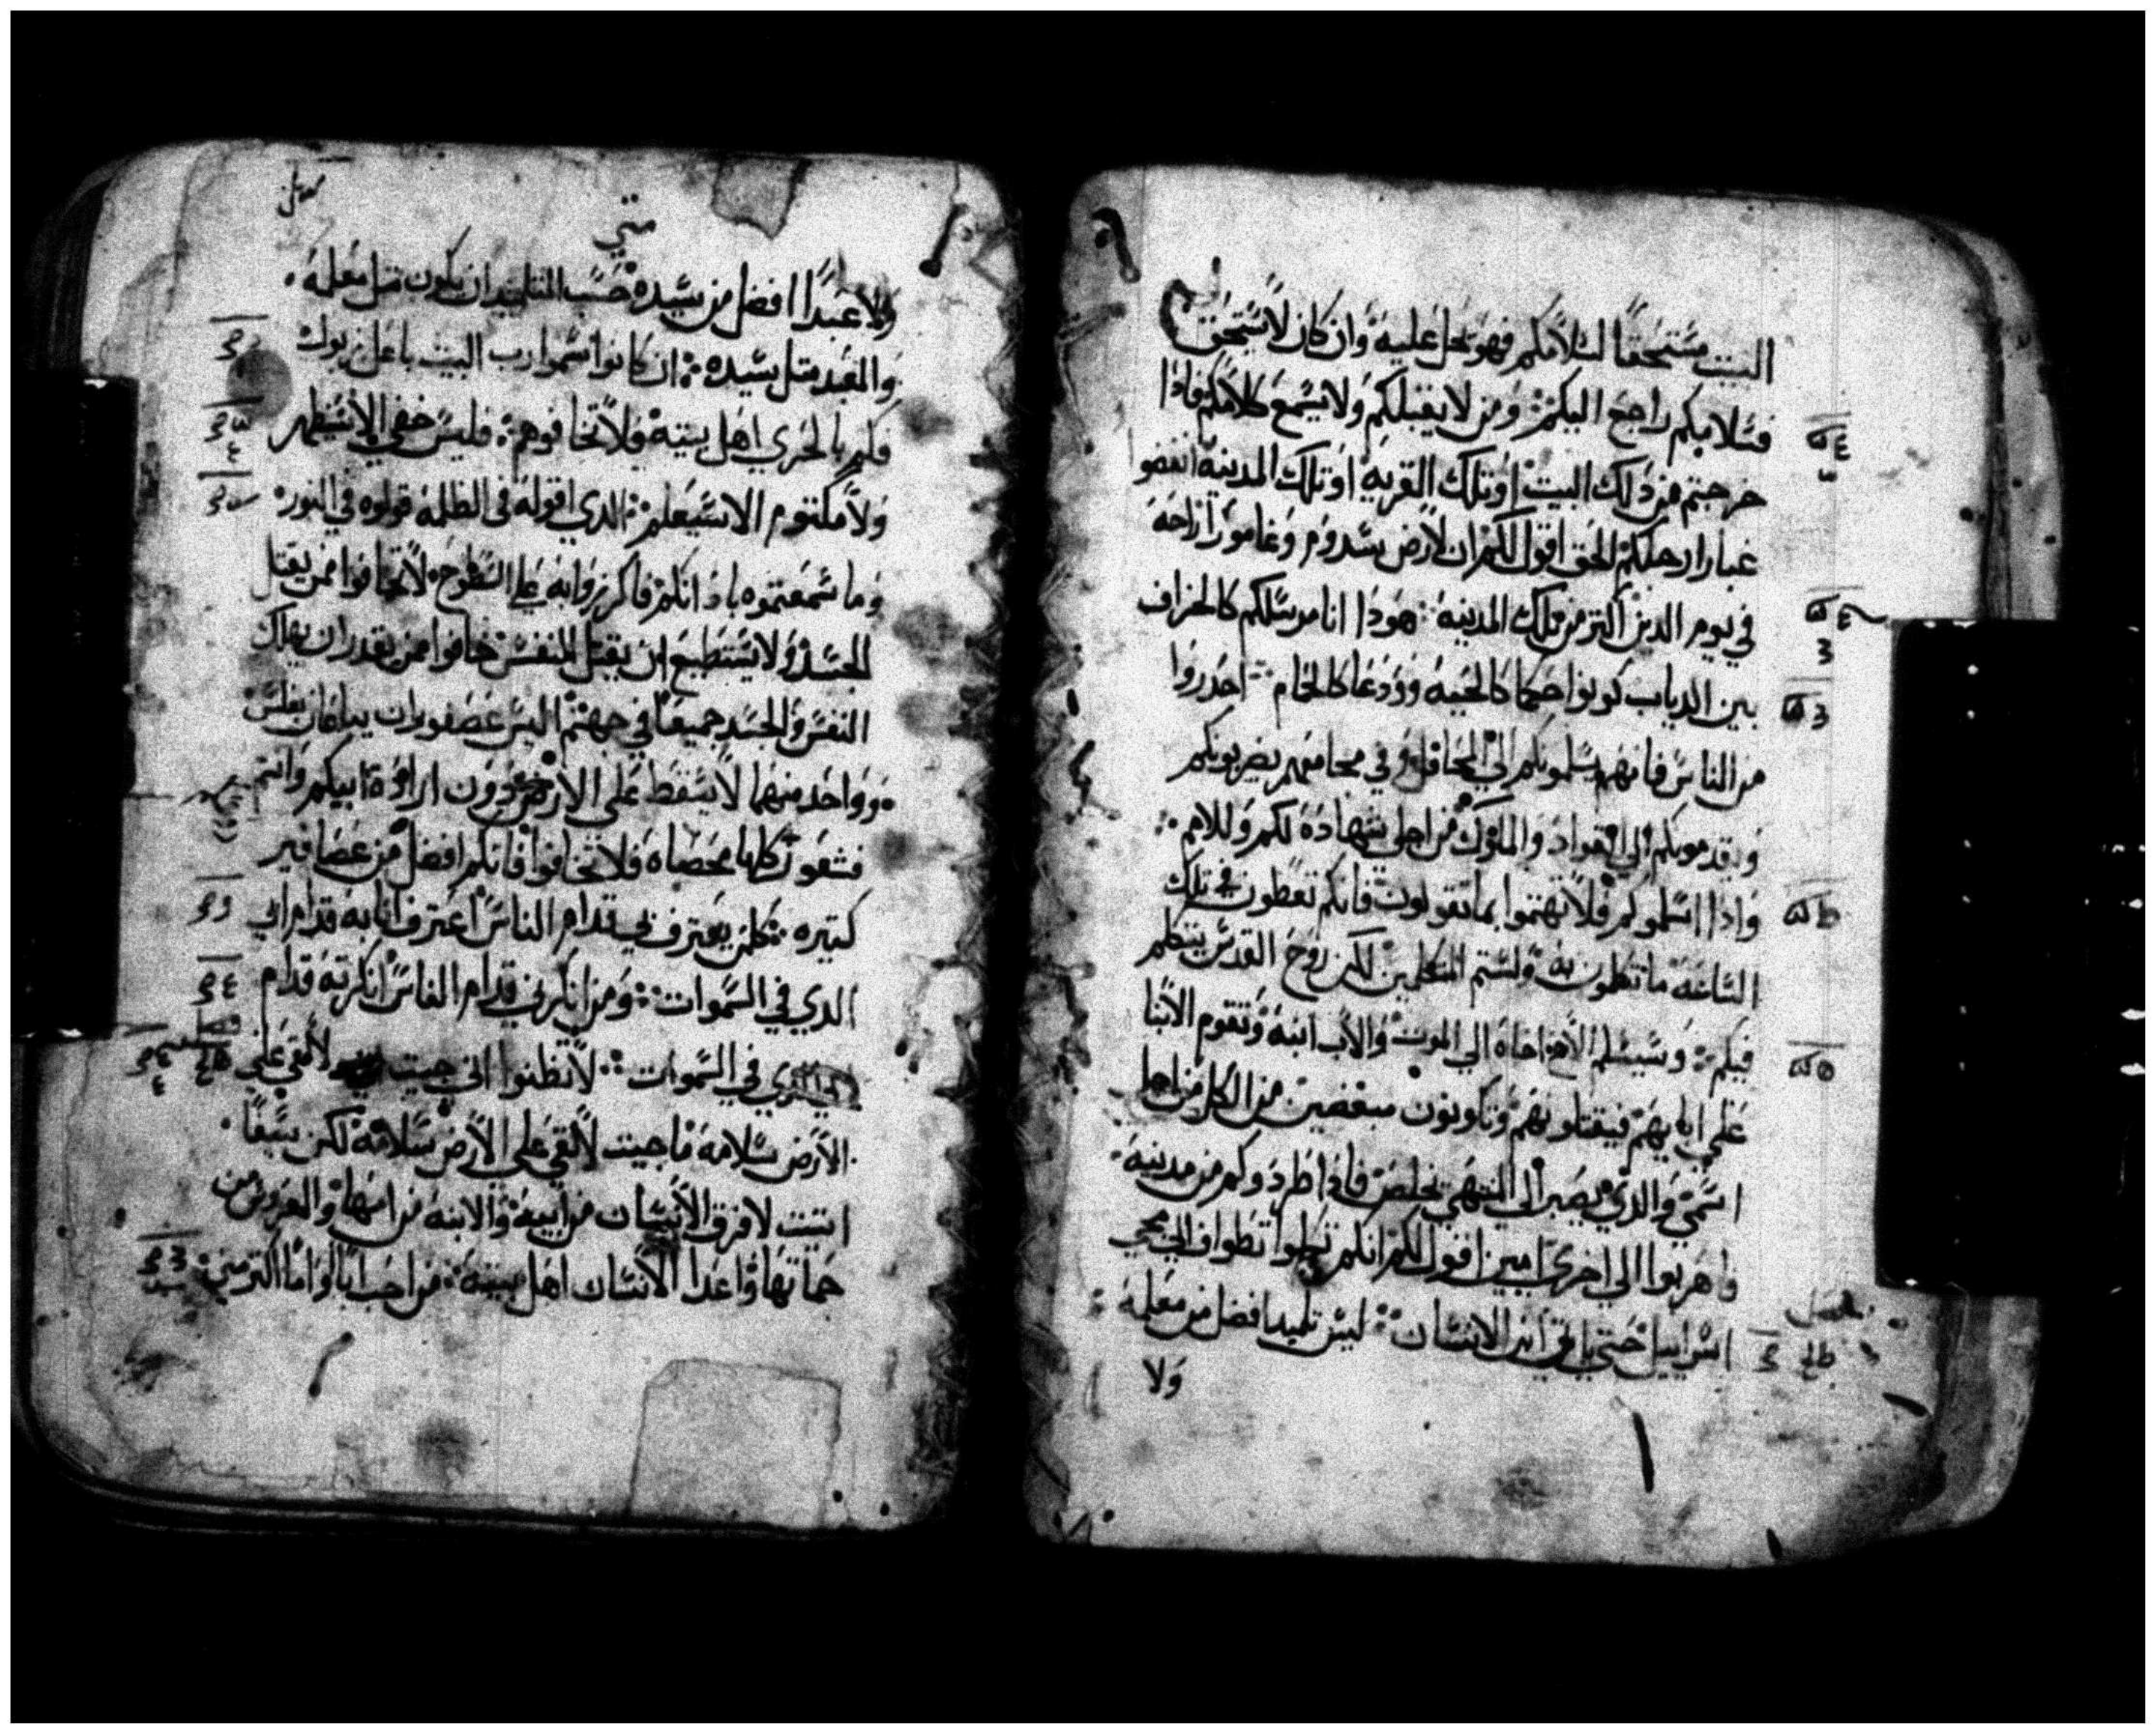 البيت مستحقًا لسلامكم فهو يحل عليه وان كان لا يستحق
فسلامكم راجع اليكم ومن لا يقبلكم ولا يسمع كلامكم فاذا
خرجتم من ذلك البيت او تلك القريه او تلك المدينه انفضو
غبار ارجلكم الحق اقول لكم ان لارض سدوم وغامورا راحه
في يوم الدين اكتر من تلك المدينه هودا انا مرسلكم كالخراف
بين الدياب كونوا حكما كالحيه وودعا كالحمام احدروا
من الناس فانهم يسلمونكم الي المحافل وفي مجامعهم يضربونكم
ويقدمونكم الي القواد والملوك من اجلي شهاده لكم وللامم
واذا اسلموكم فلا تهتموا بما تقولون فانكم تعطون في تلك
الساعه ما تتكلمون به ولستم المتكلمين لكن روح القدس يتكلم
فيكم وسيسلم الاخ اخاه الي الموت والاب ابنه وتقوم الابنا
علي ابايهم فيقتلونهم وتكونون مبغضين من الكل من اجل
اسمي والدي يصبر الي المنتهي يخلص فاذا طردوكم من مدينه
واهربوا الي اخري امين اقول لكم انكم تطواف
اسراييل حتي ياتي ابن الانسان ليس تلميد افضل من معلمه
ولا
متي
ولا عبدًا افضل من سيده حسب التلميد ان يكون متل معلمه
والعبد متل سيده ان كانوا سموا رب البيت باعل زبول
فكم بالحري اهل بيته فلا تخافوهم فليس خفي الا سيظهر
ولا مكتوم الا سيعلم الدي اقوله في الظلمه قولوه في النور
وما سمعتموه باذانكم فاكرزوا به علي السطوح لا تخافوا ممن يقتل
الجسد ولا يستطيع ان يقتل النفس خافوا ممن يقدر ان يهلك
النفس والجسد جميعًا في جهنم اليس عصفوران يباعان بفلس
وواحد منهما لا يسقط علي الارض دون ارادة ابيكم وانتم
فشعور كلها محصاه فلا تخافوا فانكم افضل من عصافير
كتيره كلمن يعترف بي قدام الناس اعترف انا به قدام ابي
الدي في السموات ومن انكرني قدام الناس انكرته قدام
الدي في السموات لا تظنوا اني جيت لالقي علي
الارض سلامه ما جيت لالقي علي الارض سلامه لكن سيفًا
اتيت لافرق الانسان من ابيه والابنه من امها والعروس من
حماتها واعدا الانسان اهل بيته من احب ابًا او امًا اكتر مني